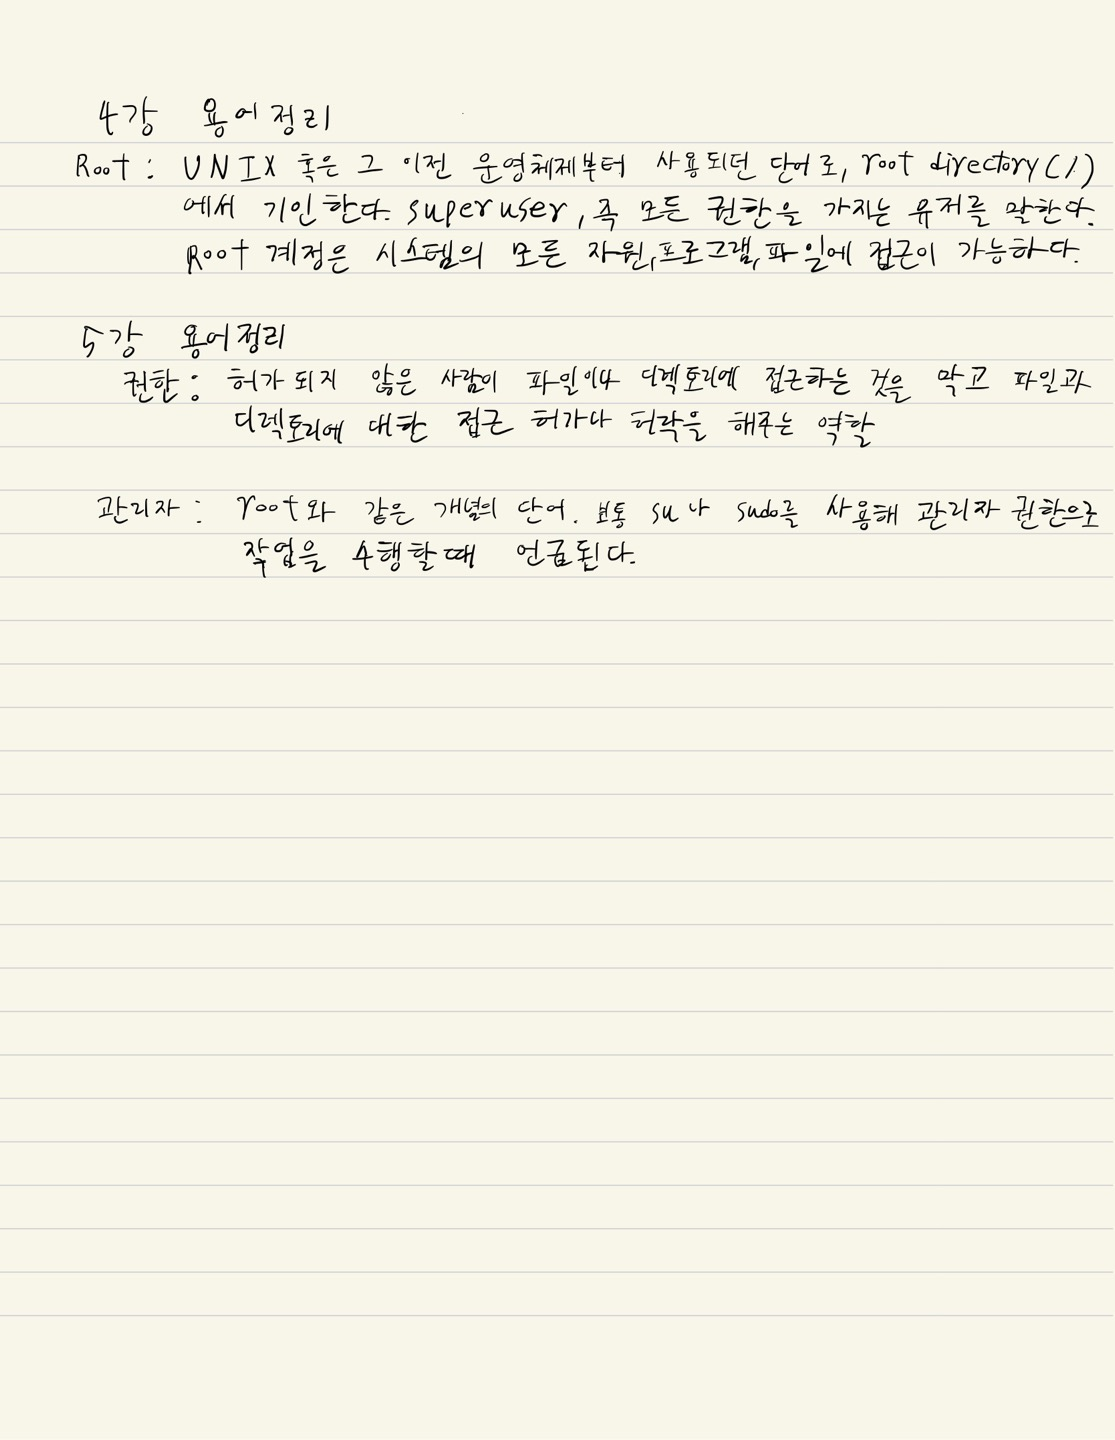 4강 용어정리
Root : UNIX 혹은 그 이전 운영체제부터 사용되던 단어로, root directory(/)
에서 기인한다. superuser, 즉 모든 권한을 가지는 유저를 말한다.
Root 계정은 시스템의 모든 자원,프로그램,파일에 접근이 가능하다.
5강 용어정리
권한 : 허가 되지 않은 사람이 파일이나 디렉토리에 접근하는 것을 막고 파일과
디렉토리에 대한 접근 허가나 허락을 해주는 역할
관리자 : root와 같은 개념의 단어. 보통 su나 sudo를 사용해 관리자 권한으로
작업을 수행할때 언급된다.